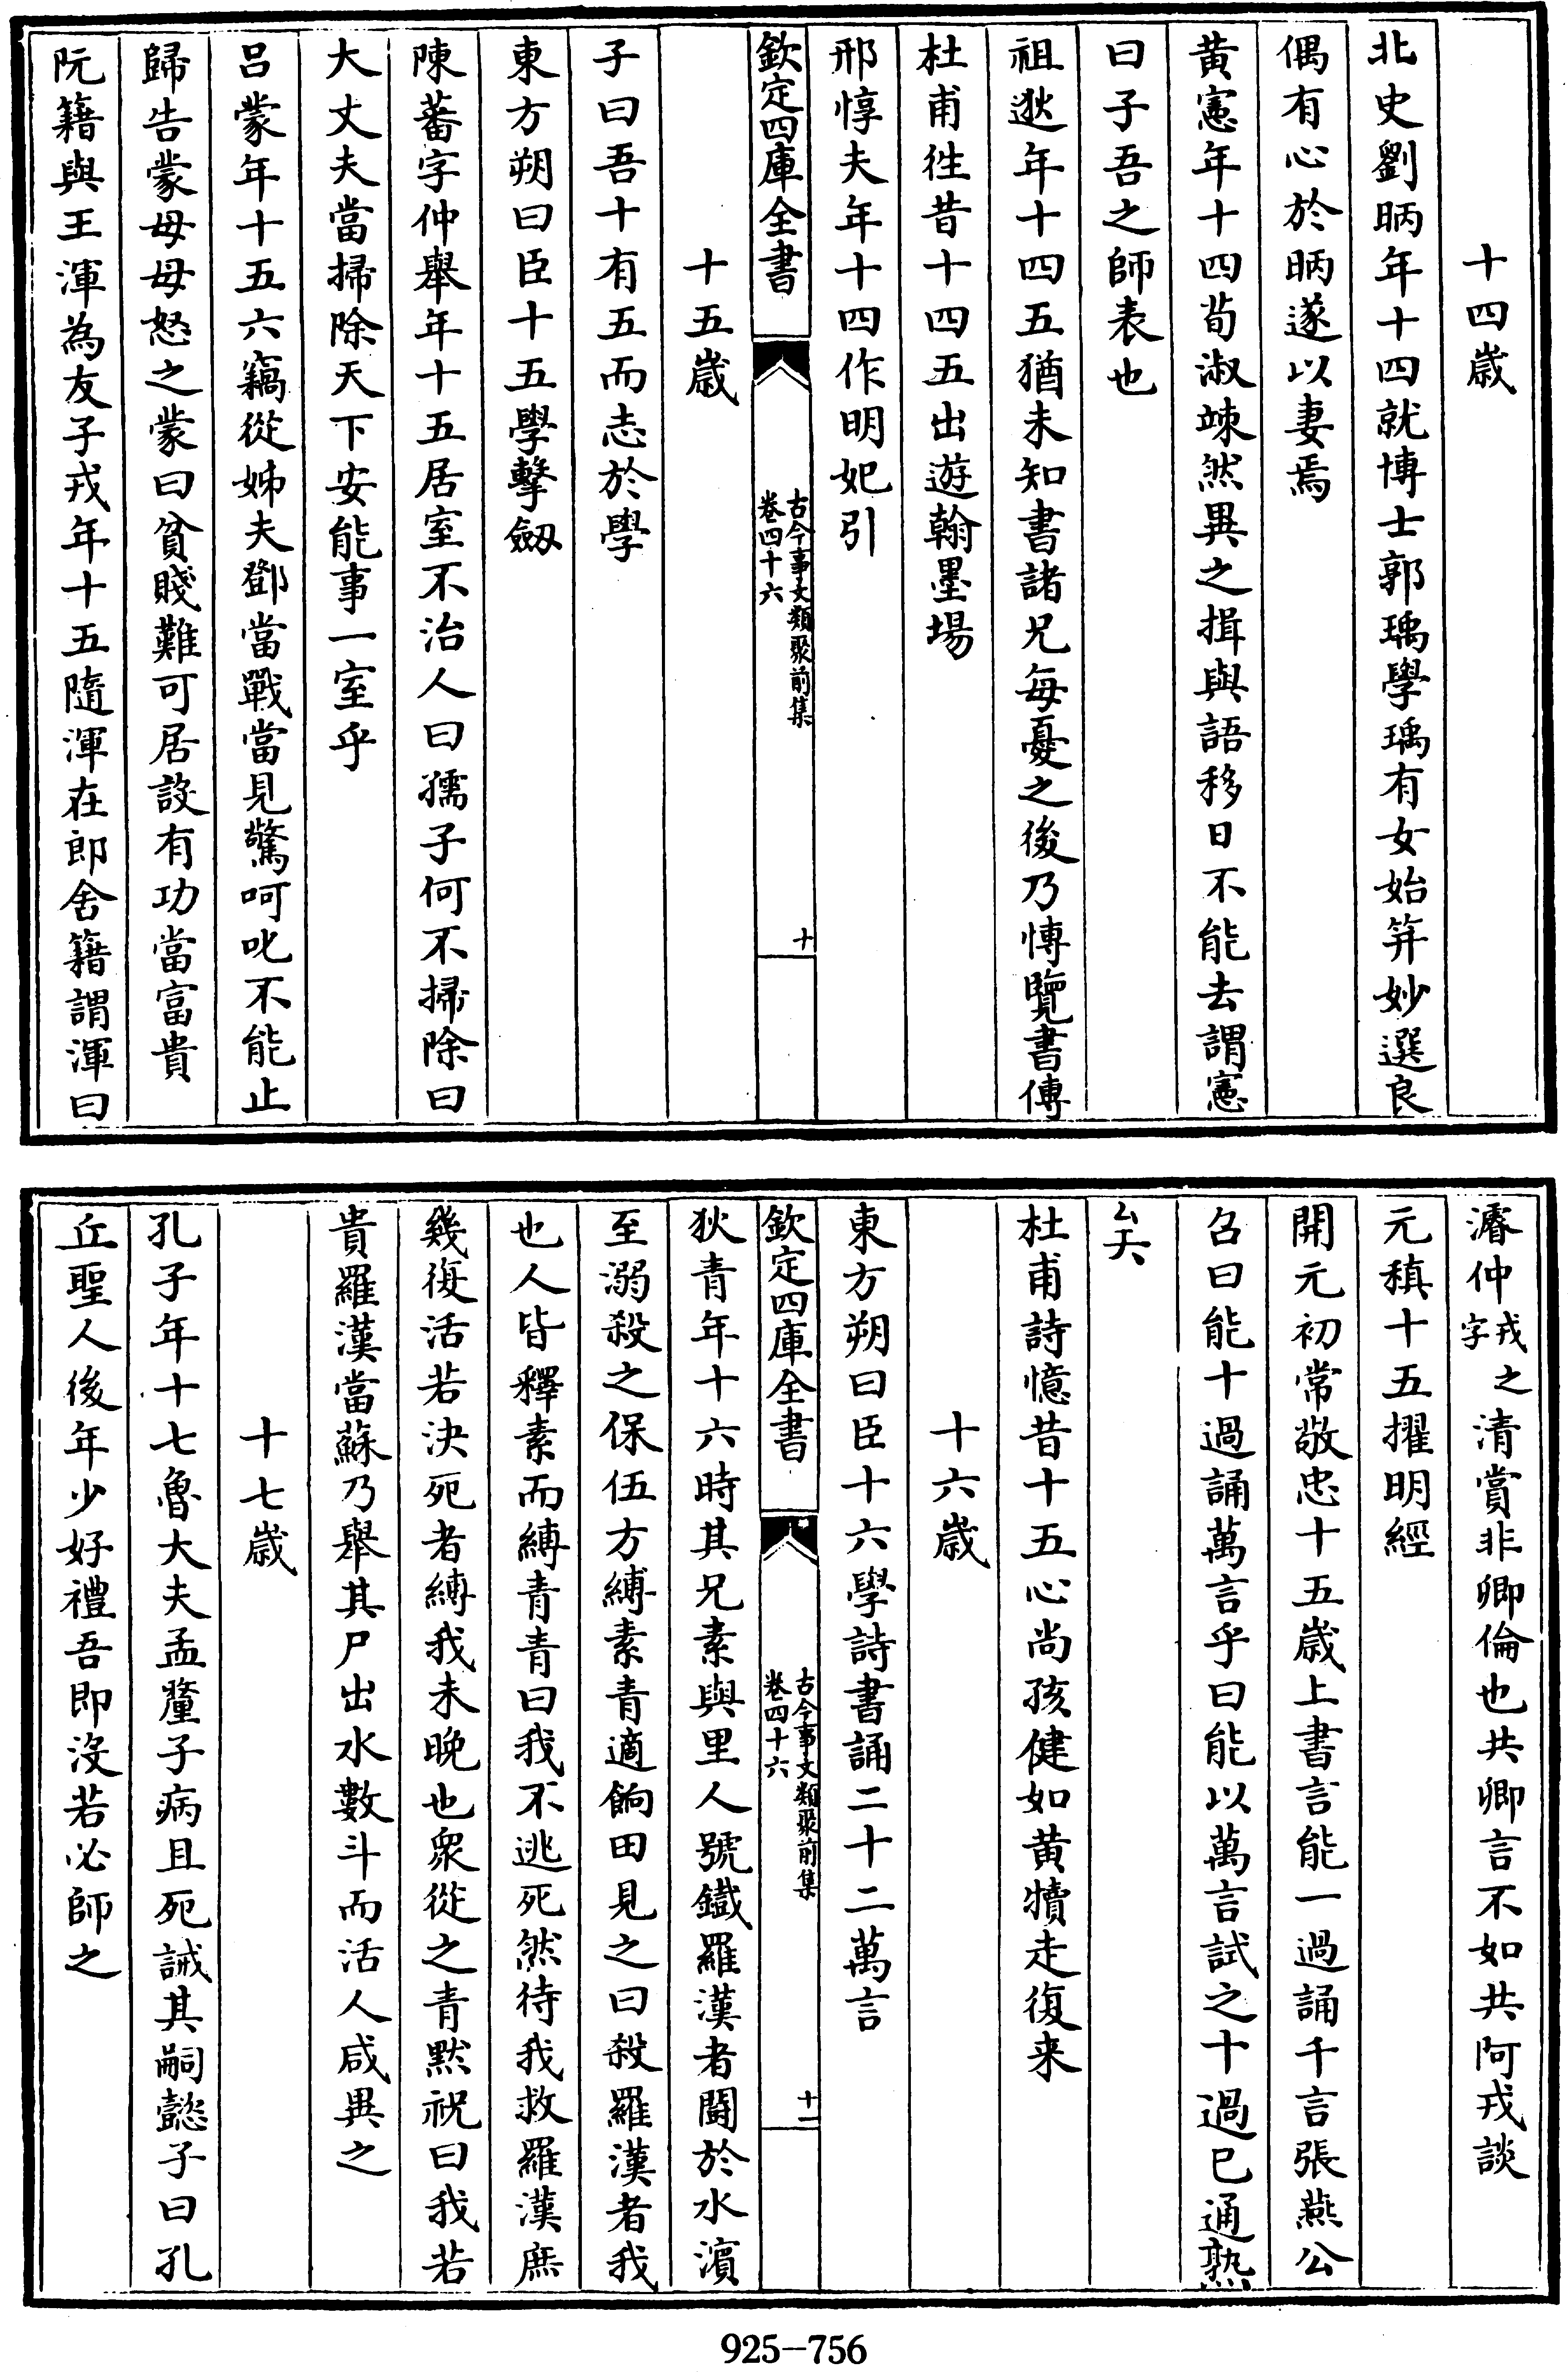 十四歲
北史劉昞年十四就博士郭瑀學瑀有女始笄妙選良
偶有心於昞遂以妻焉
黄憲年十四荀淑竦然異之揖與語移日不能去謂憲
曰子吾之師表也
祖逖年十四五猶未知書諸兄每憂之後乃博覽書傳
杜甫徃昔十四五出遊翰墨場
邢惇夫年十四作明妃引
欽定四庫全書
古今事文類聚前集
卷四十六
十
十五歲
子曰吾十有五而志於學
東方朔曰臣十五學擊劒
陳蕃字仲舉年十五居室不治人曰孺子何不掃除曰
大丈夫當掃除天下安能事一室乎
吕蒙年十五六竊從姊夫鄧當戰當見驚呵叱不能止
歸告蒙母母怒之蒙曰貧賤難可居設有功當富貴
阮籍與王渾為友子戎年十五隨渾在郎舍籍謂渾曰
濬仲戎之字清賞非卿倫也共卿言不如共阿戎談
元稹十五擢明經
開元初常敬忠十五歲上書言能一過誦千言張燕公
召曰能十過誦萬言乎曰能以萬言試之十過已通熟
矣
杜甫詩憶昔十五心尚孩健如黄犢走復来
十六歲
東方朔曰臣十六學詩書誦二十二萬言
欽定四庫全書
古今事文類聚前集
卷四十六
十一
狄青年十六時其兄素與里人號鐵羅漢者鬭於水濵
至溺殺之保伍方縛素青適餉田見之曰殺羅漢者我
也人皆釋素而縛青青曰我不逃死然待我救羅漢庶
幾復活若決死者縛我未晚也衆從之青黙祝曰我若
貴羅漢當蘇乃舉其尸出水數斗而活人咸異之
十七歲
孔子年十七魯大夫孟釐子病且死誡其嗣懿子曰孔
丘聖人後年少好禮吾即沒若必師之
925-756